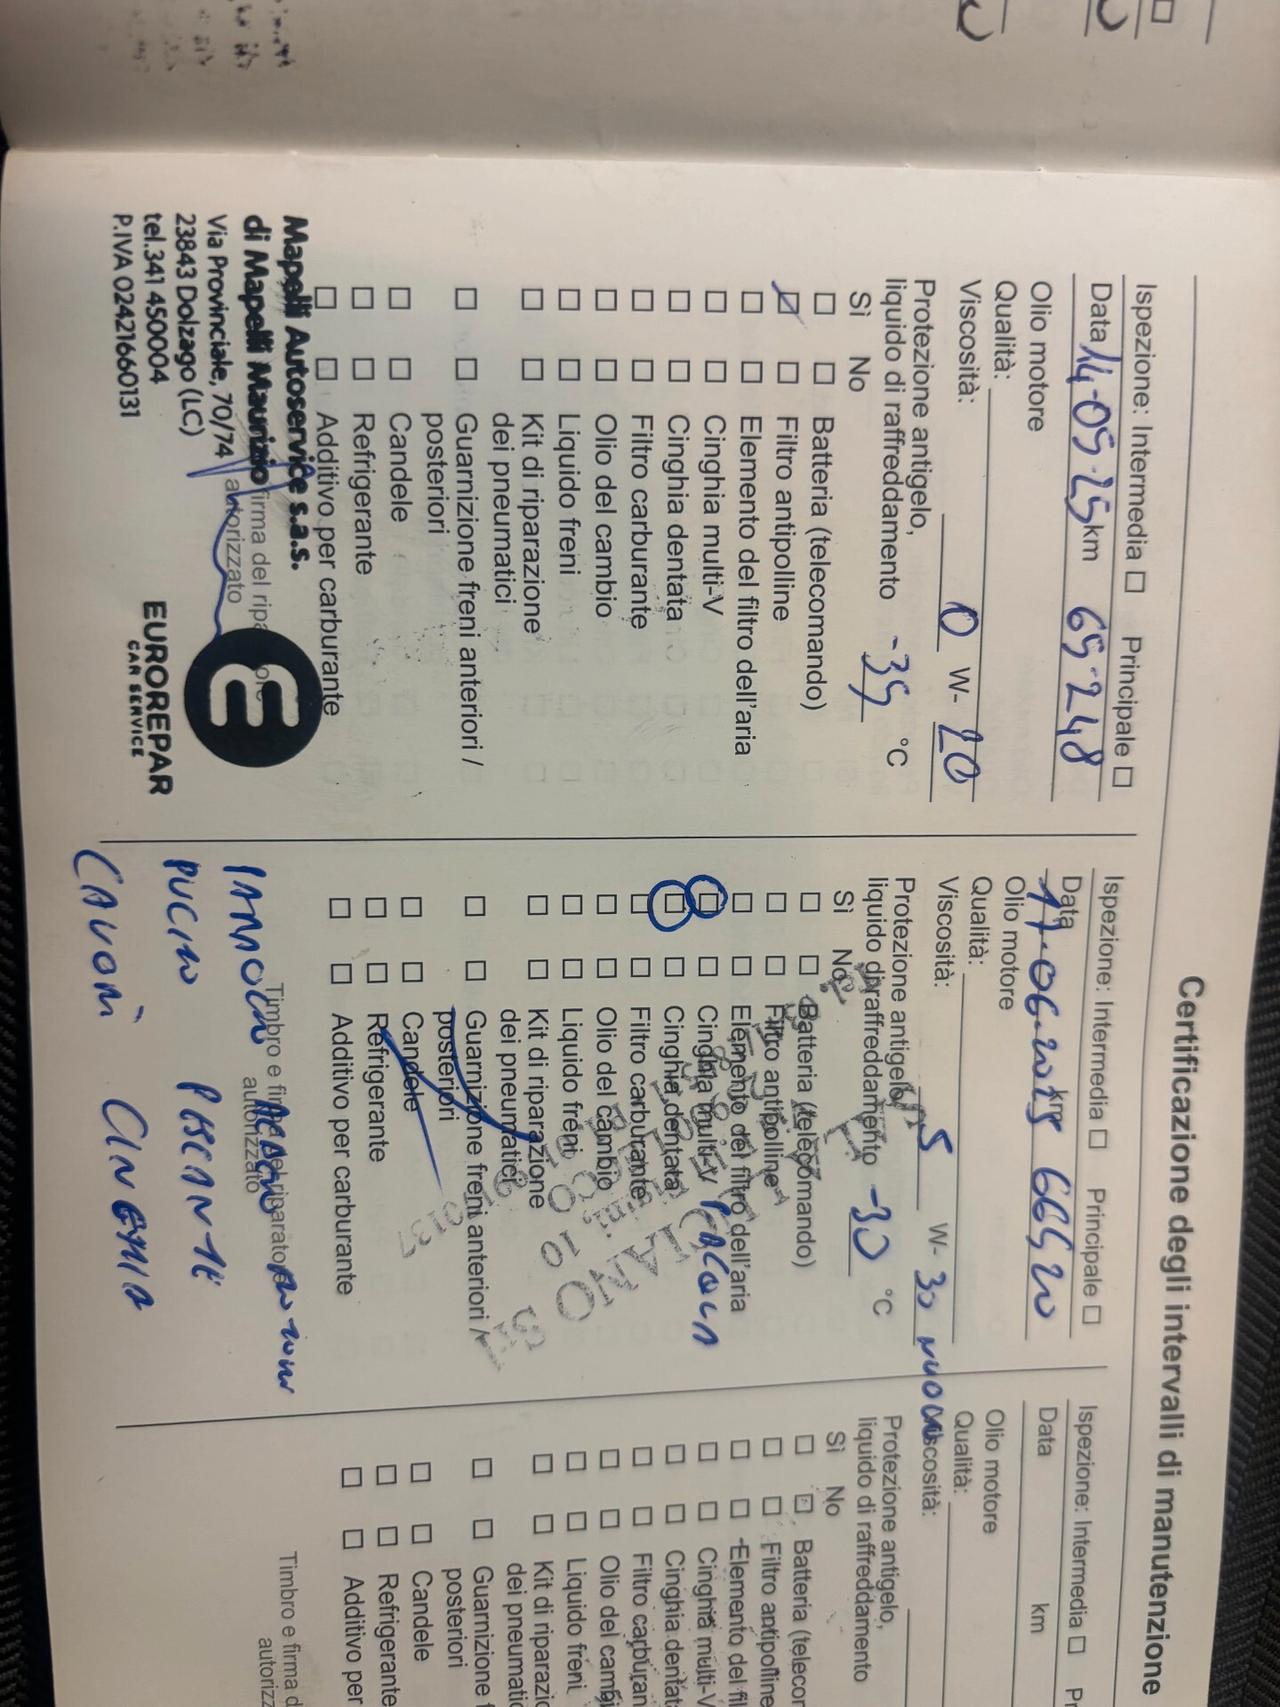 Certificazione degli intervalli di manutenzione
Ispezione: Intermedia ☐ Principale ☐
Data 14-05-25 km 65-248
Olio motore
Qualità:
Viscosità: 0 W- 20
Protezione antigelo,
liquido di raffreddamento -35 °C
Sì No
Batteria (telecomando)
Filtro antipolline
Elemento del filtro dell'aria
Cinghia multi-V
Cinghia dentata
Filtro carburante
Olio del cambio
Liquido freni
Kit di riparazione
dei pneumatici
Guarnizione freni anteriori /
posteriori
Candele
Refrigerante
Additivo per carburante
firma del
autorizzato
Mapelli Autoservice s.a.s.
di Mapelli Maurizio
Via Provinciale, 70/74
23843 Dolzago (LC)
tel.341 450004
P.IVA 02421660131
EUROREPAR
CAR SERVICE
Ispezione: Intermedia ☐ Principale ☐
Data 17-06-2025 km 66520
Olio motore
Qualità:
Viscosità: 5 W- 30
Protezione antigelo,
liquido di raffreddamento -30 °C
Sì No
Batteria (telecomando)
Filtro antipolline
Elemento del filtro dell'aria
Cinghia multi-V
Cinghia dentata
Filtro carburante
Olio del cambio
Liquido freni
Kit di riparazione
dei pneumatici
Guarnizione freni anteriori /
posteriori
Candele
Refrigerante
Additivo per carburante
Timbro e firma del riparatore
autorizzato
CINGHIA
Ispezione: Intermedia ☐
Data km
Olio motore
Qualità:
Viscosità:
Protezione antigelo,
liquido di raffreddamento
Sì No
Batteria
Filtro antipolline
Elemento del
Cinghia multi-V
Cinghia
Filtro
Olio del
Liquido freni
Kit di
dei
Guarnizione
posteriori
Candele
Refrigerante
Additivo per
Timbro e firma